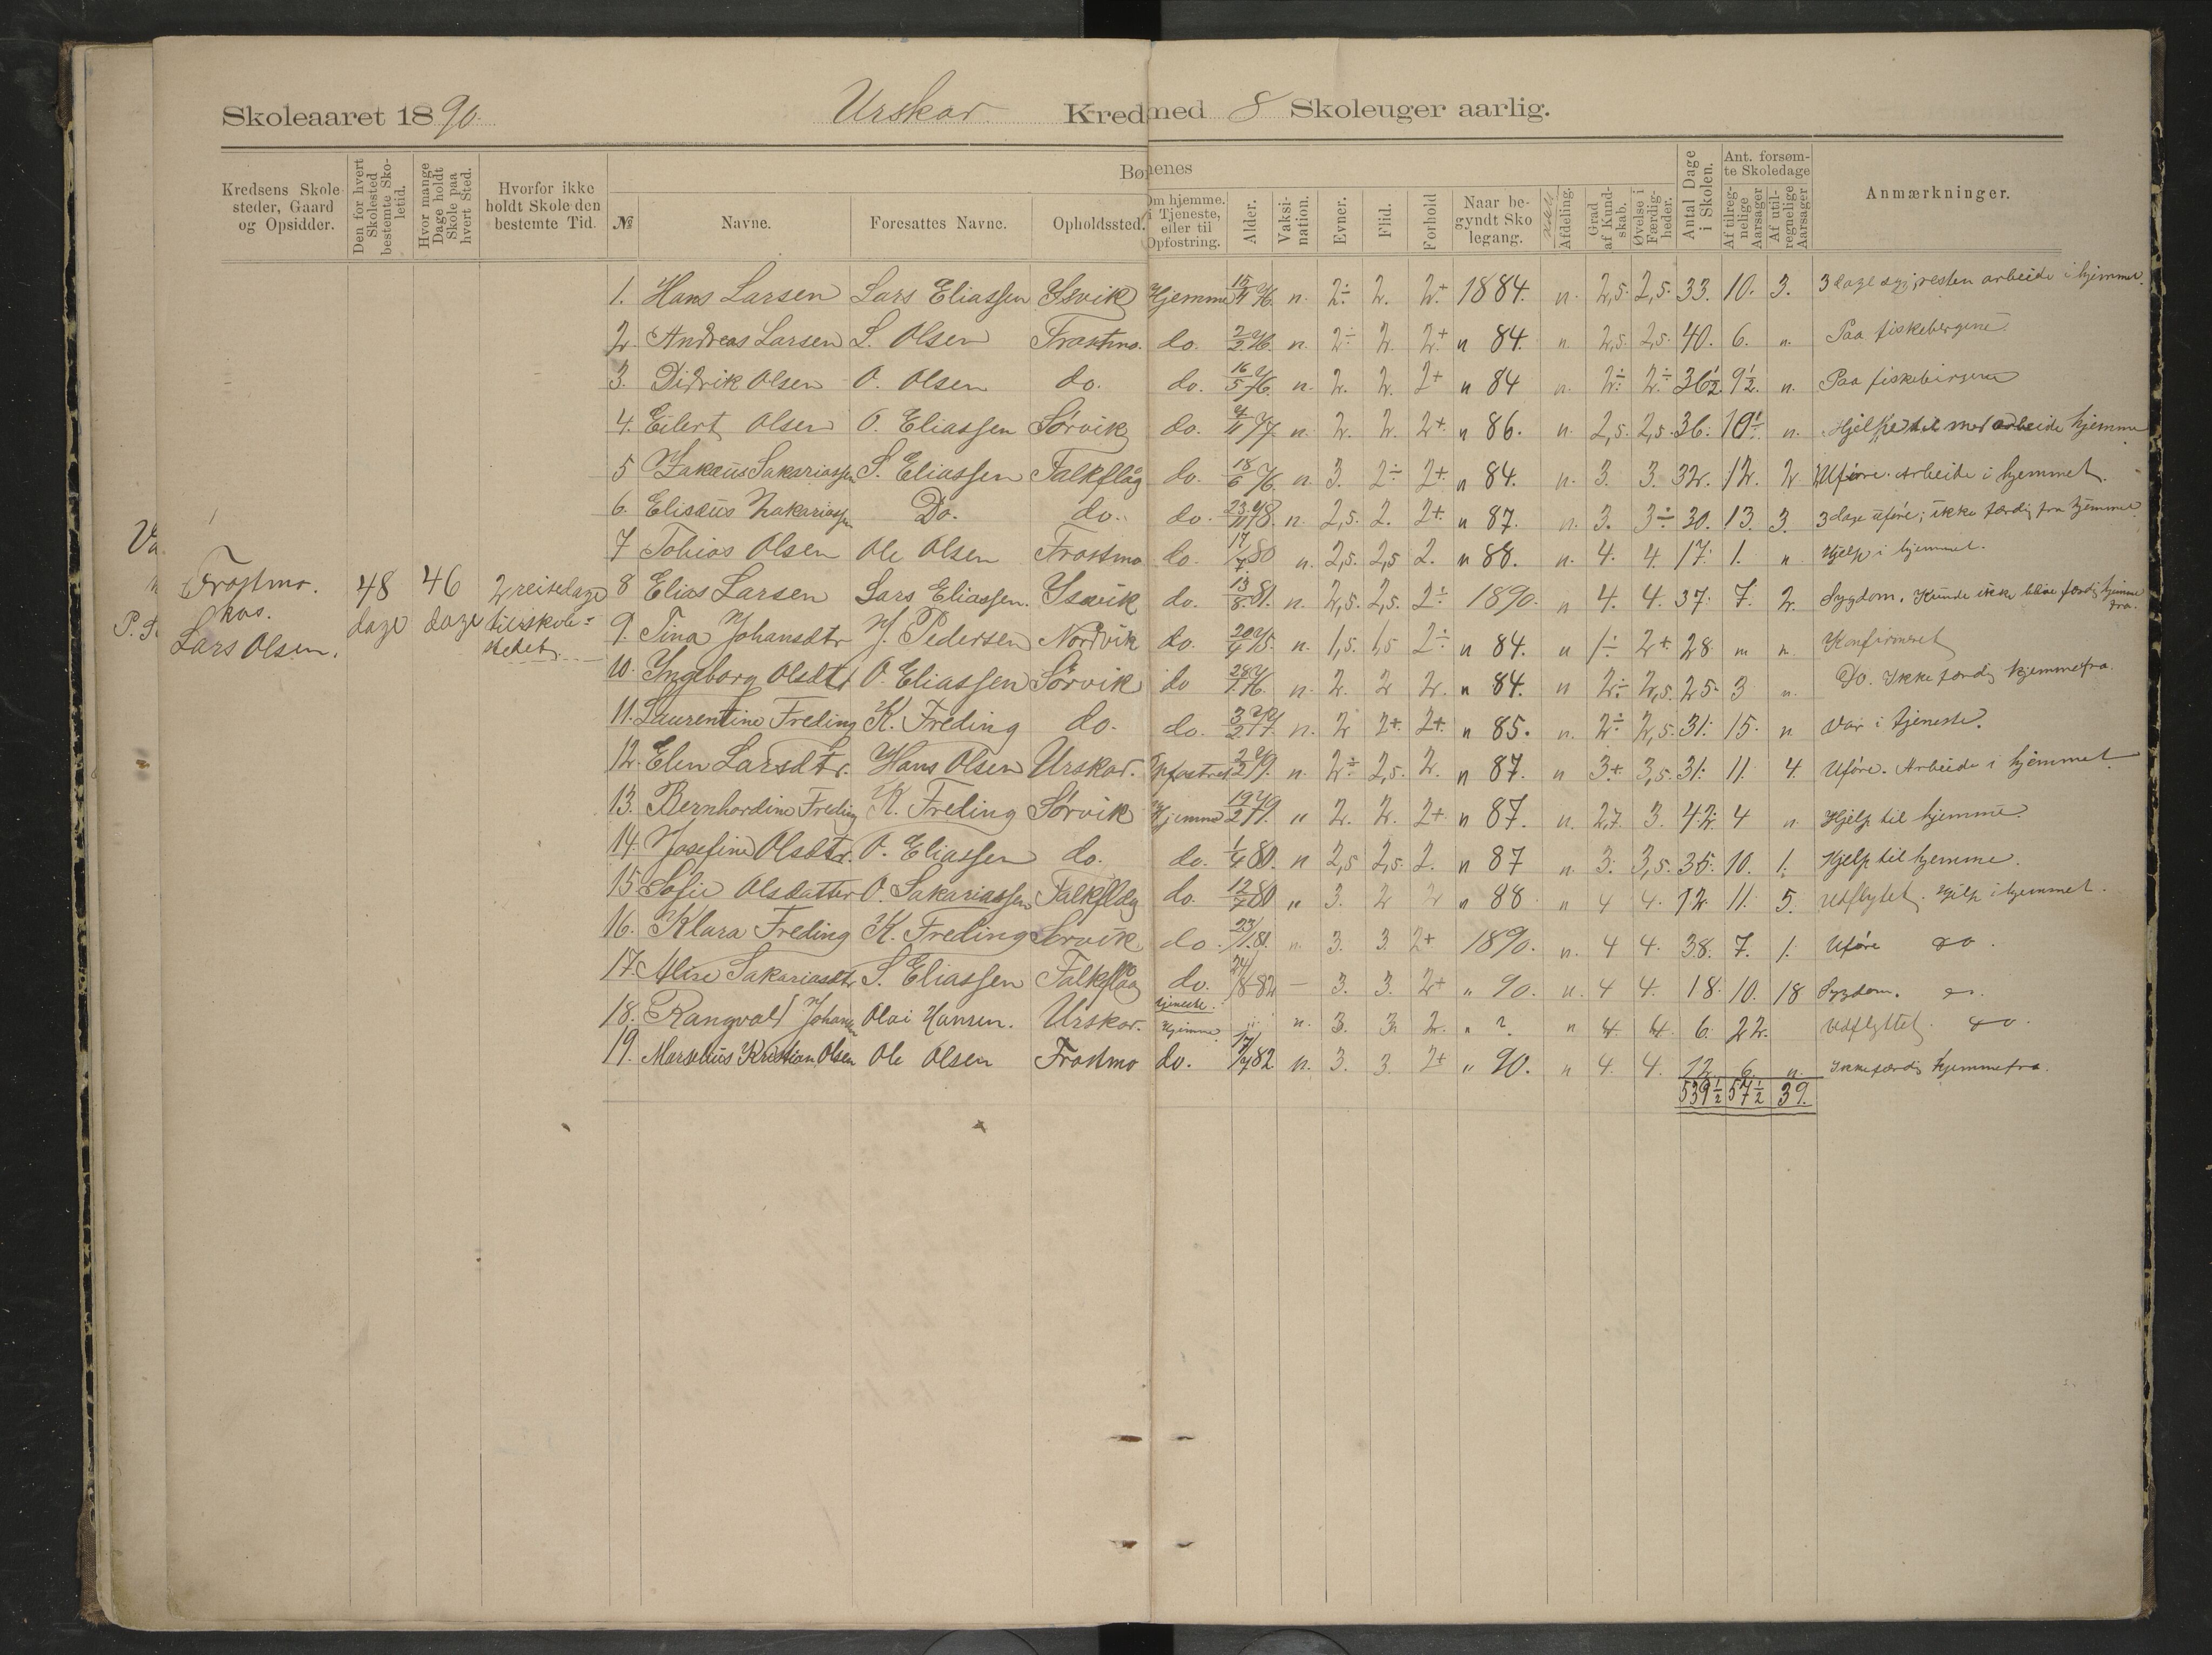 Skoleaaret 1890.
Urskar Kreds med 8 Skoleuger aarlig.
Kredsens Skolesteder, Gaard og Opsidder.
Den for hvert Skolested bestemte Skoletid.
Hvor mange Dage holdt Skole paa hvert Sted.
Hvorfor ikke holdt Skole den bestemte Tid.
Børnenes
№ Navne. Foresattes Navne. Opholdssted. Om hjemme. i Tjeneste, eller til Opfostring. Alder. Vaksination. Evner. Flid. Forhold Naar begyndt Skolegang. Afdeling. Grad af Kundskab. Øvelse i Færdigheder. Antal Dage i Skolen. Ant. forsømte Skoledage Af tilregnelige Aarsager Af utilregnelige Aarsager Anmærkninger.
1. Hans Larsen Lars Eliassen Isvik Hjemme 15/4 76 n. 2÷ 2. 2+ 1884. n. 2,5. 2,5. 33. 10. 3. 3 dage syg; resten arbeide i hjemmet.
2. Andreas Larsen L. Olsen Frostmo. do. 2/2 76. n. 2÷ 2. 2+ n 84. n. 2,5. 2,5. 40. 6. n. Paa fiskebergene.
3. Didrik Olsen O. Olsen do. do. 16/5 76. n. 2. 2. 2+ n 84 n. 2÷ 2÷ 36½ 9½. n. Paa fiskebergene
4. Eilert Olsen O. Eliassen Sørvik do. 77. n. 2. 2. 2+. n 86. n. 2,5. 2,5. 36. n. Hjelpe til med arbeide hjemme
5 Zakæus Sakariassen S. Eliassen Falkflåg do. 18/6 76. n. 3. 2÷ 2+. n 84. n. 3. 3. 32. 12. 2 Uføre. Arbeide i hjemmet.
6. Elisæus Zakariassen Do. do. do. 23/11 78. n. 2,5. 2. 2+. n 87. n. 3. 3÷ 30. 13. 3. 3 dage uføre; ikke færdig fra hjemmet
7 Tobias Olsen Ole Olsen Frostmo do. 17/7 80 n. 2,5. 2,5 2. n 88. n. 4. 4. 17. 1. n Hjelp i hjemmet.
Frostmo.
hos.
Lars Olsen.
48 dage
46 dage
2 reisedage til skolestedet.
8 Elias Larsen Lars Eliassen. Isvik do. 13/8 81. n. 2,5. 2,5. 2÷ 1890. n 4. 4. 37. 7. 2. Sygdom. Kunde ikke blive færdig hjemme fra.
9. Tina Johansdtr J. Pedersen Nordvik do. 75. n. 1,5. 1,5 2÷ n 84. n 1÷ 2+. 28 n n. Konfirmeret
10. Ingeborg Olsdtr O. Eliassen Sørvik do 76. n. 2. 2 2. n 84. n 2÷ 2,5. 25. 3 n. Do. Ikke færdig hjemmefra.
11. Laurentine Freding K. Freding do. do. 3/2 77. n. 2 2+ 2+. n 85. n. 2÷ 2,5. 31. 15. n Var i tjeneste.
12. Elen Larsdtr. Hans Olsen Urskar. Opfostret 2/2 79. n. 2÷ 2,5. 2. n 87. n 3+. 3,5. 31. 11. 4. Uføre. Arbeide i hjemmet
13. Bernhardine Freding K. Freding Sørvik Hjemme 19/2 79. " 2. 2. 2+. n 87. n. 2,7. 3. 42. 4 n Hjelp til hjemme.
14. Josefine Olsdtr. O. Eliassen do. do. 1/4 80. n 2,5 2,5. 2. n 87 n 3. 3,5. 35. 10. 1. Hjelp til hjemme.
15 Sofie Olsdatter O. Sakariassen Falkflåg do. 12/7 80 " 3. 2 2 n 88 n 4 4. 12. 11. 5. Udflyttet. Hjelp i hjemmet.
16. Klara Freding K. Freding Sørvik do. 23/1 81. n. 3. 3. 2+ 1890. n. 4 4. 38. 7. 1. Uføre do.
17. Alise Sakariasdtr S. Eliassen Falkflåg do. 24/8 82 – 3. 3. 2+ " 90. n. 4 4. 18. 10. 18 Sygdom. do.
18. Rangvald Johansen Olai Hansen. Urskar. tjeneste. Hjemme n. 3. 3. 2. " ?. n 4. 4. 6. 22. Udflyttet. do.
19. Marselius Kristian Olsen Ole Olsen Frostmo do. 82. n. 3. 3 2+ " 90. n 4. 4. 12. 6. n. Ikke færdig hjemmefra.
539½ 57½ 39.